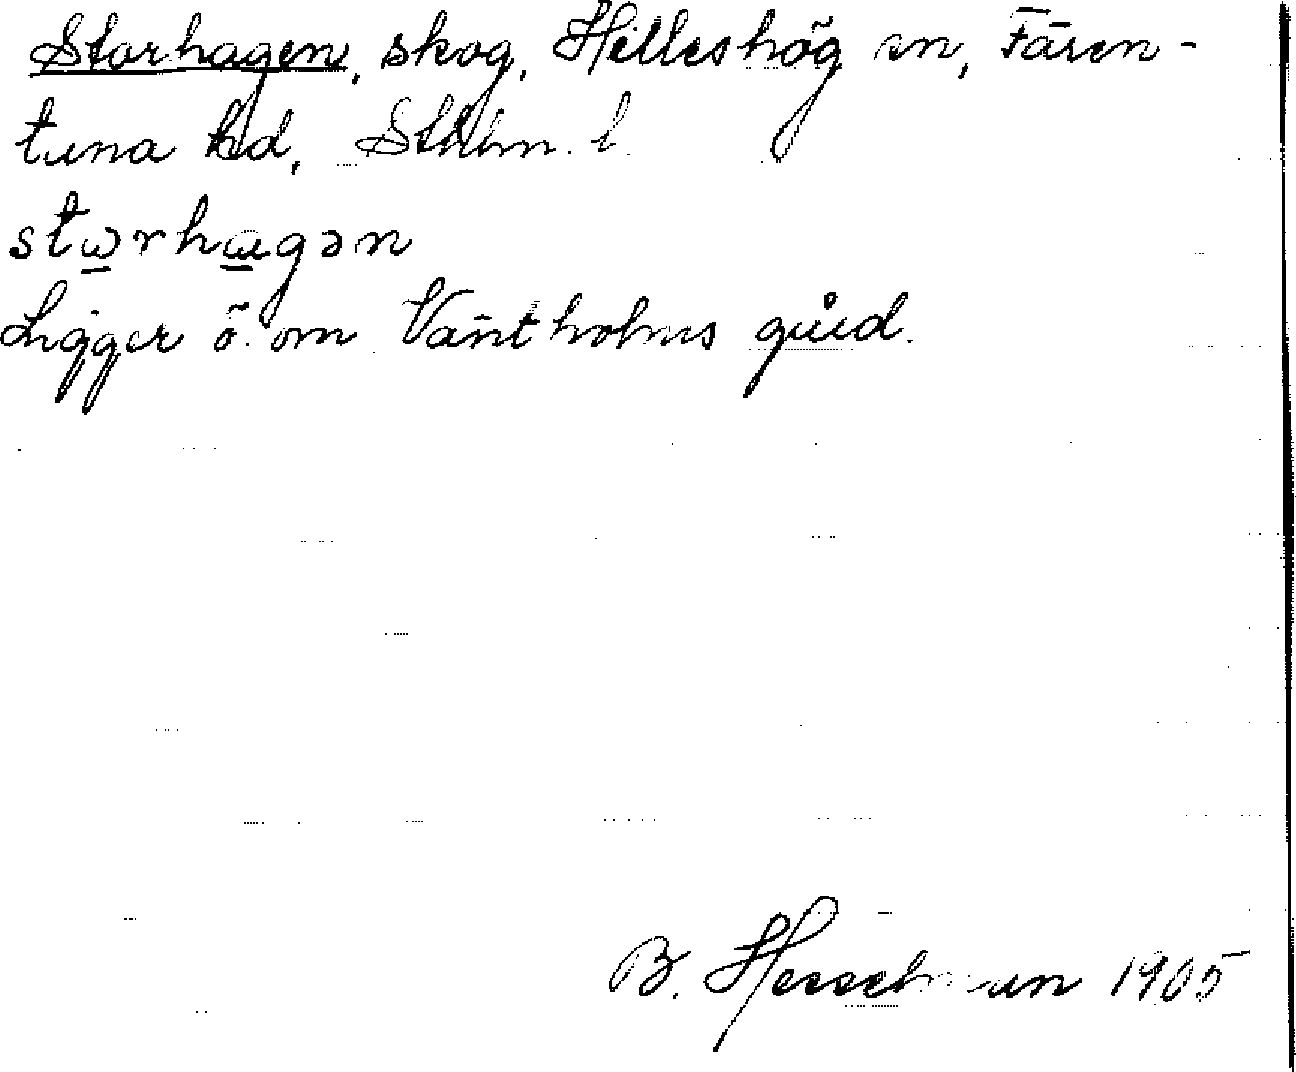 Storhagen, skog, Hilleshög sn, Fären-
tuna hd, Sthlm. l.
stωrhɯgən
Ligger ö. om Väntholms gärd.
B. Hesselman 1905